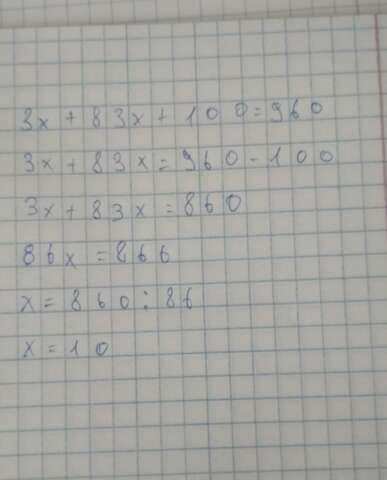 3x + 83x + 100 = 960
3x + 83x = 960 - 100
3x + 83x = 860
86x = 866
x = 860 : 86
x = 10